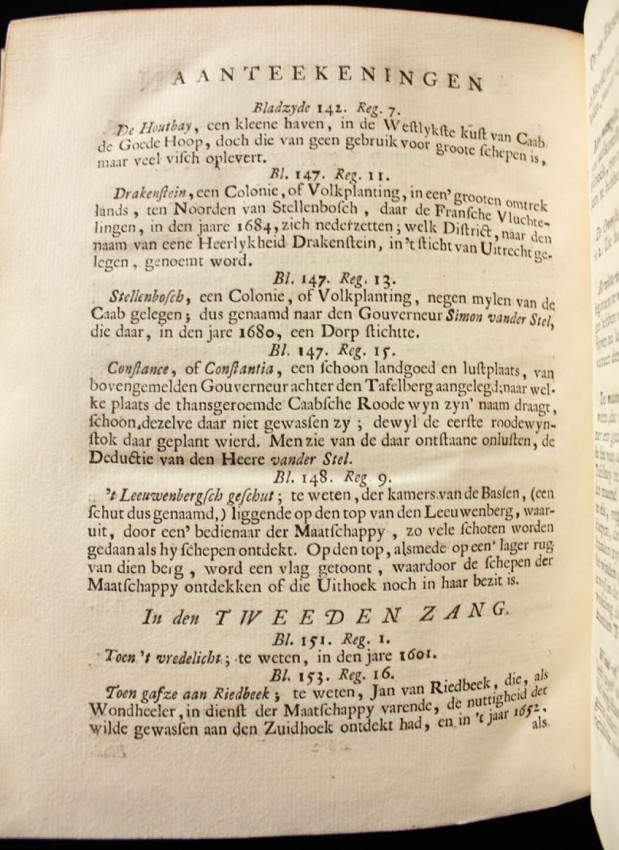 AANTEEKENINGEN
Bladzyde 142. Reg. 7.
De Houtbay, een kleene haven, in de Weſtlykſte kuſt van Caab
de Goede Hoop, doch die van geen gebruik voor groote ſchepen is,
maar veel viſch oplevert.
Bl. 147. Reg. 11.
Drakenſtein, een Colonie, of Volkplanting, in een' grooten omtrek
lands, ten Noorden van Stellenboſch, daar de Franſche Vluchte-
lingen, in den jaare 1684, zich nederzetten; welk Diſtrict, naar den
naam van eene Heerlykheid Drakenſtein, in 't ſticht van Uitrecht ge-
legen, genoemt word.
Bl. 147. Reg. 13.
Stellenboſch, een Colonie, of Volkplanting, negen mylen van de
Caab gelegen; dus genaamd naar den Gouverneur Simon vander Stel,
die daar, in den jare 1680, een Dorp ſtichtte.
Bl. 147. Reg. 15.
Conſtance, of Conſtantia, een ſchoon landgoed en luſtplaats, van
bovengemelden Gouverneur achter den Tafelberg aangelegd; naar wel-
ke plaats de thansgeroemde Caabſche Roode wyn zyn' naam draagt,
ſchoon, dezelve daar niet gewaſſen zy; dewyl de eerſte roodewyn-
ſtok daar geplant wierd. Men zie van de daar ontſtaane onluſten, de
Deductie van den Heere vander Stel.
Bl. 148. Reg 9.
't Leeuwenbergſch geſchut; te weten, der kamers van de Baſſen, (een
ſchut dus genaamd,) liggende op den top van den Leeuwenberg, waar-
uit, door een' bedienaar der Maatſchappy, zo vele ſchoten worden
gedaan als hy ſchepen ontdekt. Op den top, alsmede op een' lager rug
van dien berg, word een vlag getoont, waardoor de ſchepen der
Maatſchappy ontdekken of die Uithoek noch in haar bezit is.
In den TWEEDEN ZANG.
Bl. 151. Reg. 1.
Toen 't vredelicht; te weten, in den jare 1601.
Bl. 153. Reg. 16.
Toen gafze aan Riedbeek; te weten, Jan van Riedbeek, die, als
Wondheeler, in dienſt der Maatſchappy varende, de nuttigheid der
wilde gewaſſen aan den Zuidhoek ontdekt had, en in 't jaar 1652.
als